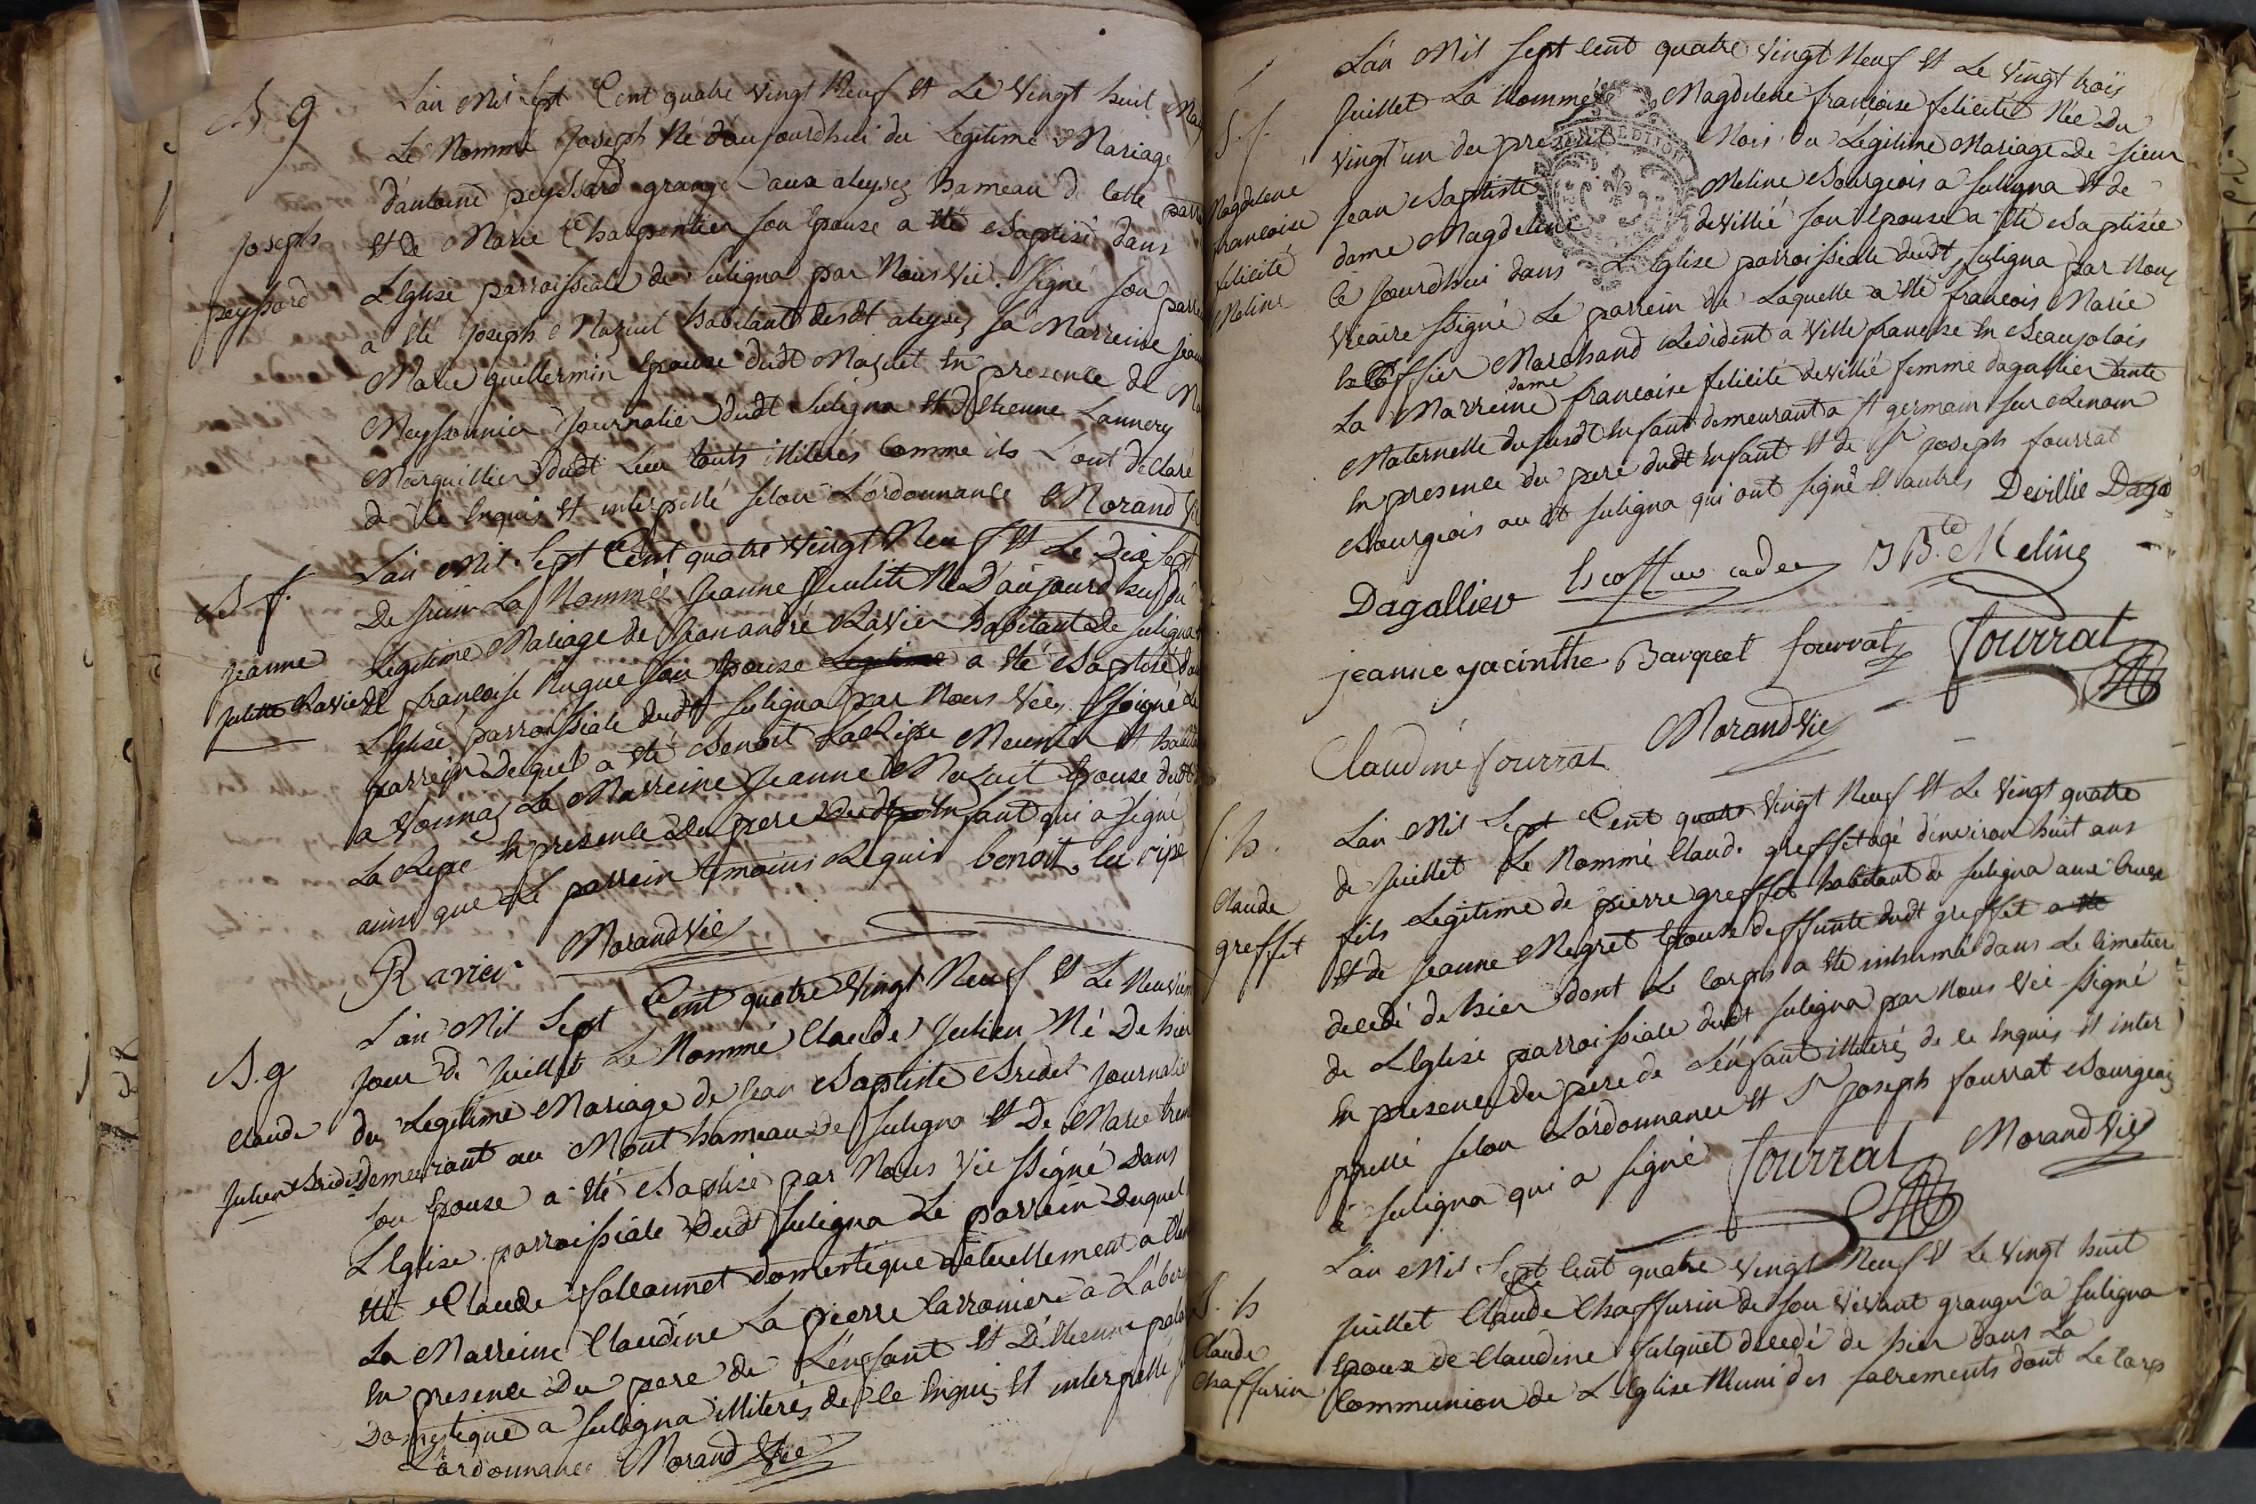 B g
Joseph
peyssard
L'an Mil sept Cent quatre vingt Neuf et Le Vingt huit
Le Nommé Joseph Né d'aujourdhui du Legitime Mariage
d'antoine peyssard granger aux aleysez hameau de cette
et de Marie Charpentier son Epouse a été Baptisé dans
L'Eglise parroissiale de suligna par Nous Vic. ssigné son
a été Joseph Mazuit habitant desdt aleysez sa Marreine
Marie guillermin Epouse dudt Mazuit En presence de
Meyssonnier Journalier dudt Suligna et d'Etienne Lannery
Marguillier dudt Lieu touts illiterés Comme ils L'ont declaré
de Ce Enquis et interpellé selon L'ordonnance Morand
B f.
Jeanne
Julitte Ravier
L'an Mil Sept Cent quatre Vingt Neuf et Le Dix sept
De Juin La Nommée Jeanne Julite Née D'aujourdhui du
Legitime Mariage de Jean andré Ravier habitant De suligna
et francoise hugue son Epouse Legitime a été Baptisé
L'Eglise parroissiale dudt suligna par Nous Vic. ssigné
parrein Duquel a été Benoit La Ripe Meunier et
a Vonnaz La Marreine Jeanne Mazuit Epouse dudt
La Ripe En presence Du pere Dudt Enfant qui a signé
ainsi que Le parrein temoins Requis benoit la ripe
Ravier Morand Vic
B. g
Claude
Julien Bridet
L'an Mil Sept Cent quatre Vingt Neuf et Le
Jour de Juillet Le Nommé Claude Julien Né De hier
du Legitime Mariage de Jean Baptiste Bridet Journalier
Demeurant au Mont hameau de Suligna et De Marie
son Epouse a été Baptisé par Nous Vic ssigné Dans
L'Eglise parroissiale Dudt Suligna Le parrein Duquel
été Claude falconnet domestique actuellement a
La Marreine Claudine La pierre Carroniere a
En presence Du pere de L'enfant et D'Etienne
Domestique a Suligna illiterés de Ce Enquis et interpellé
L'ordonnance Morand Vic
B. f.
Magdelene
francoise
felicité
Meline
L'an Mil sept Cent quatre Vingt Neuf et Le Vingt trois
Juillet La Nommée Magdelene françoise felicité Née Du
vingt un du present Mois du Légitime Mariage De sieur
Jean Baptiste Meline Bourgeois a suligna et de
dame Magdelene devillié son Epouse a été Baptisée
Ce Jourdhui dans L'Eglise parroissiale dudt suligna par Nous
Vicaire ssigné Le parrein de Laquelle a été francois Marie
Escoffier Marchand Resident a Villefranche En Beaujolois
La Marreine dame francoise felicité devillié femme dagallier tante
Maternelle du susdt Enfant demeurant a st germain sur Renom
En presence du pere dudt Enfant et de sr Joseph fourrat
Bourgeois au dt suligna qui ont signé et autres Devillie
Dagallier Escoffier cadet J Bte Meline
jeanne yacinthe Barquet fourrat fourrat
Claudine fourrat Morand Vic
Claude
greffet
L'an Mil Sept Cent quatre Vingt Neuf et Le Vingt quatre
de Juillet Le Nommé Claude greffet agé d'environ huit ans
fils Legitime de pierre greffet habitant de suligna aux
et de Jeanne Megret Epouse deffunte dudt greffet a été
decedé de hier dont Le Corps a été inhumé dans Le Cimetiere
de L'Eglise parroissiale dudt suligna par Nous Vic ssigné
En presence du pere de L'enfant illiteré de Ce Enquis et inter
pellé selon L'ordonnance et sr Joseph fourrat Bourgeois
a suligna qui a signé fourrat Morand Vic
S. h
Claude
Chaffurin
L'an Mil Sept Cent quatre Vingt Neuf et Le Vingt huit
Juillet Claude Chaffurin de son Vivant granger a suligna
Epoux de Claudine fulquet decedé de hier dans La
Communion de L'Eglise Muni des sacrements dont Le Corps